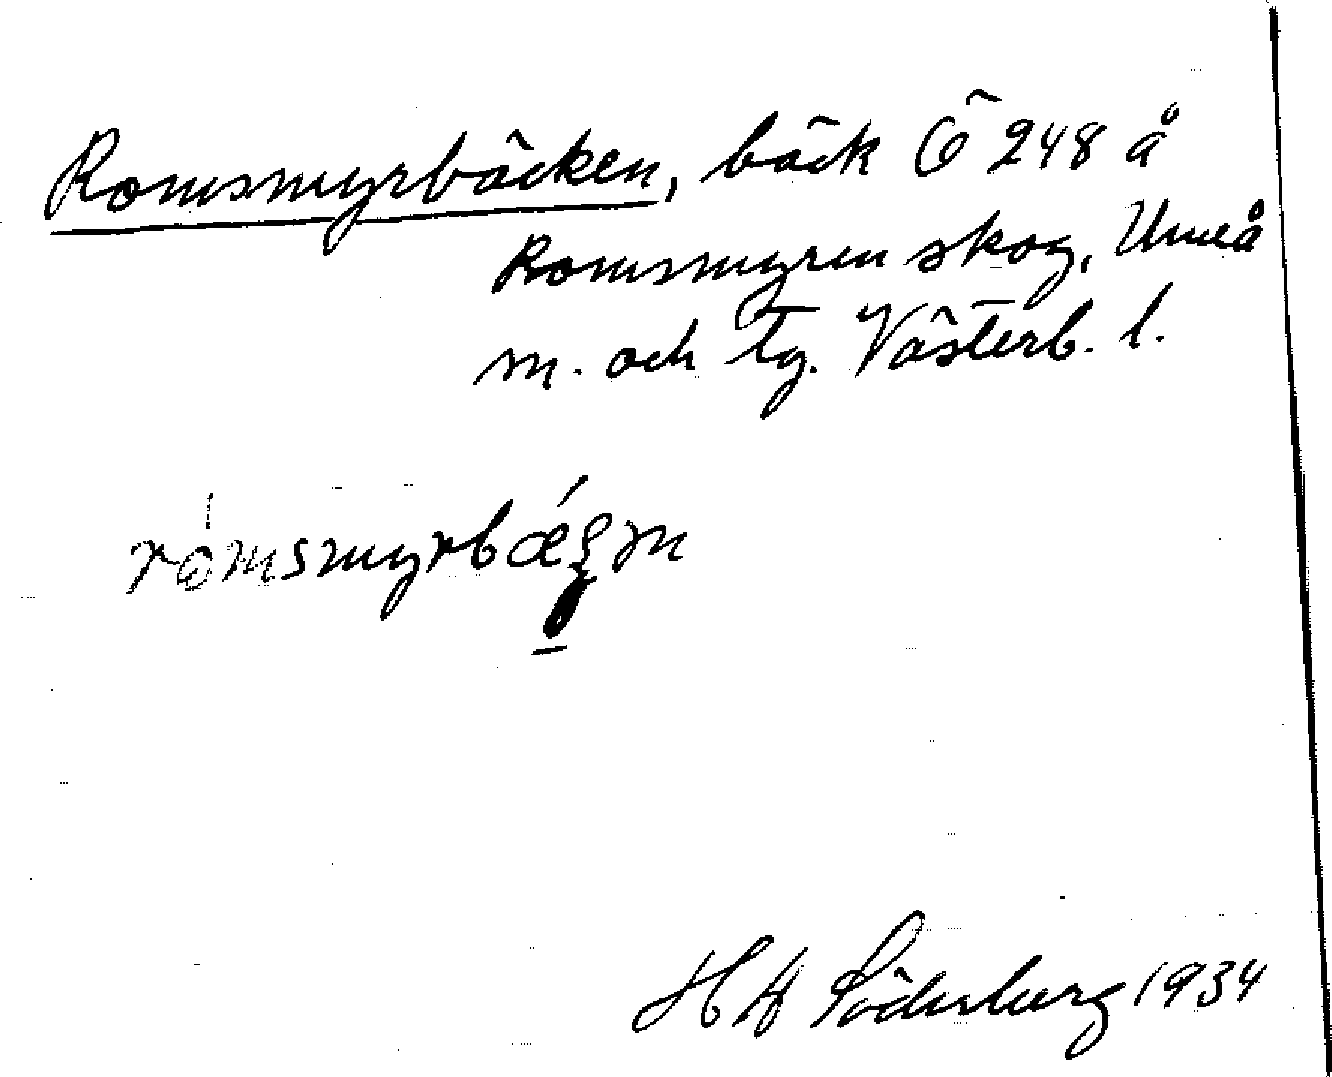 Romsmyrbäcken, bäck Ö 248 å
Romsmyren skog, Umeå
m. och tg. Västerb. l.
HW Söderberg 1934